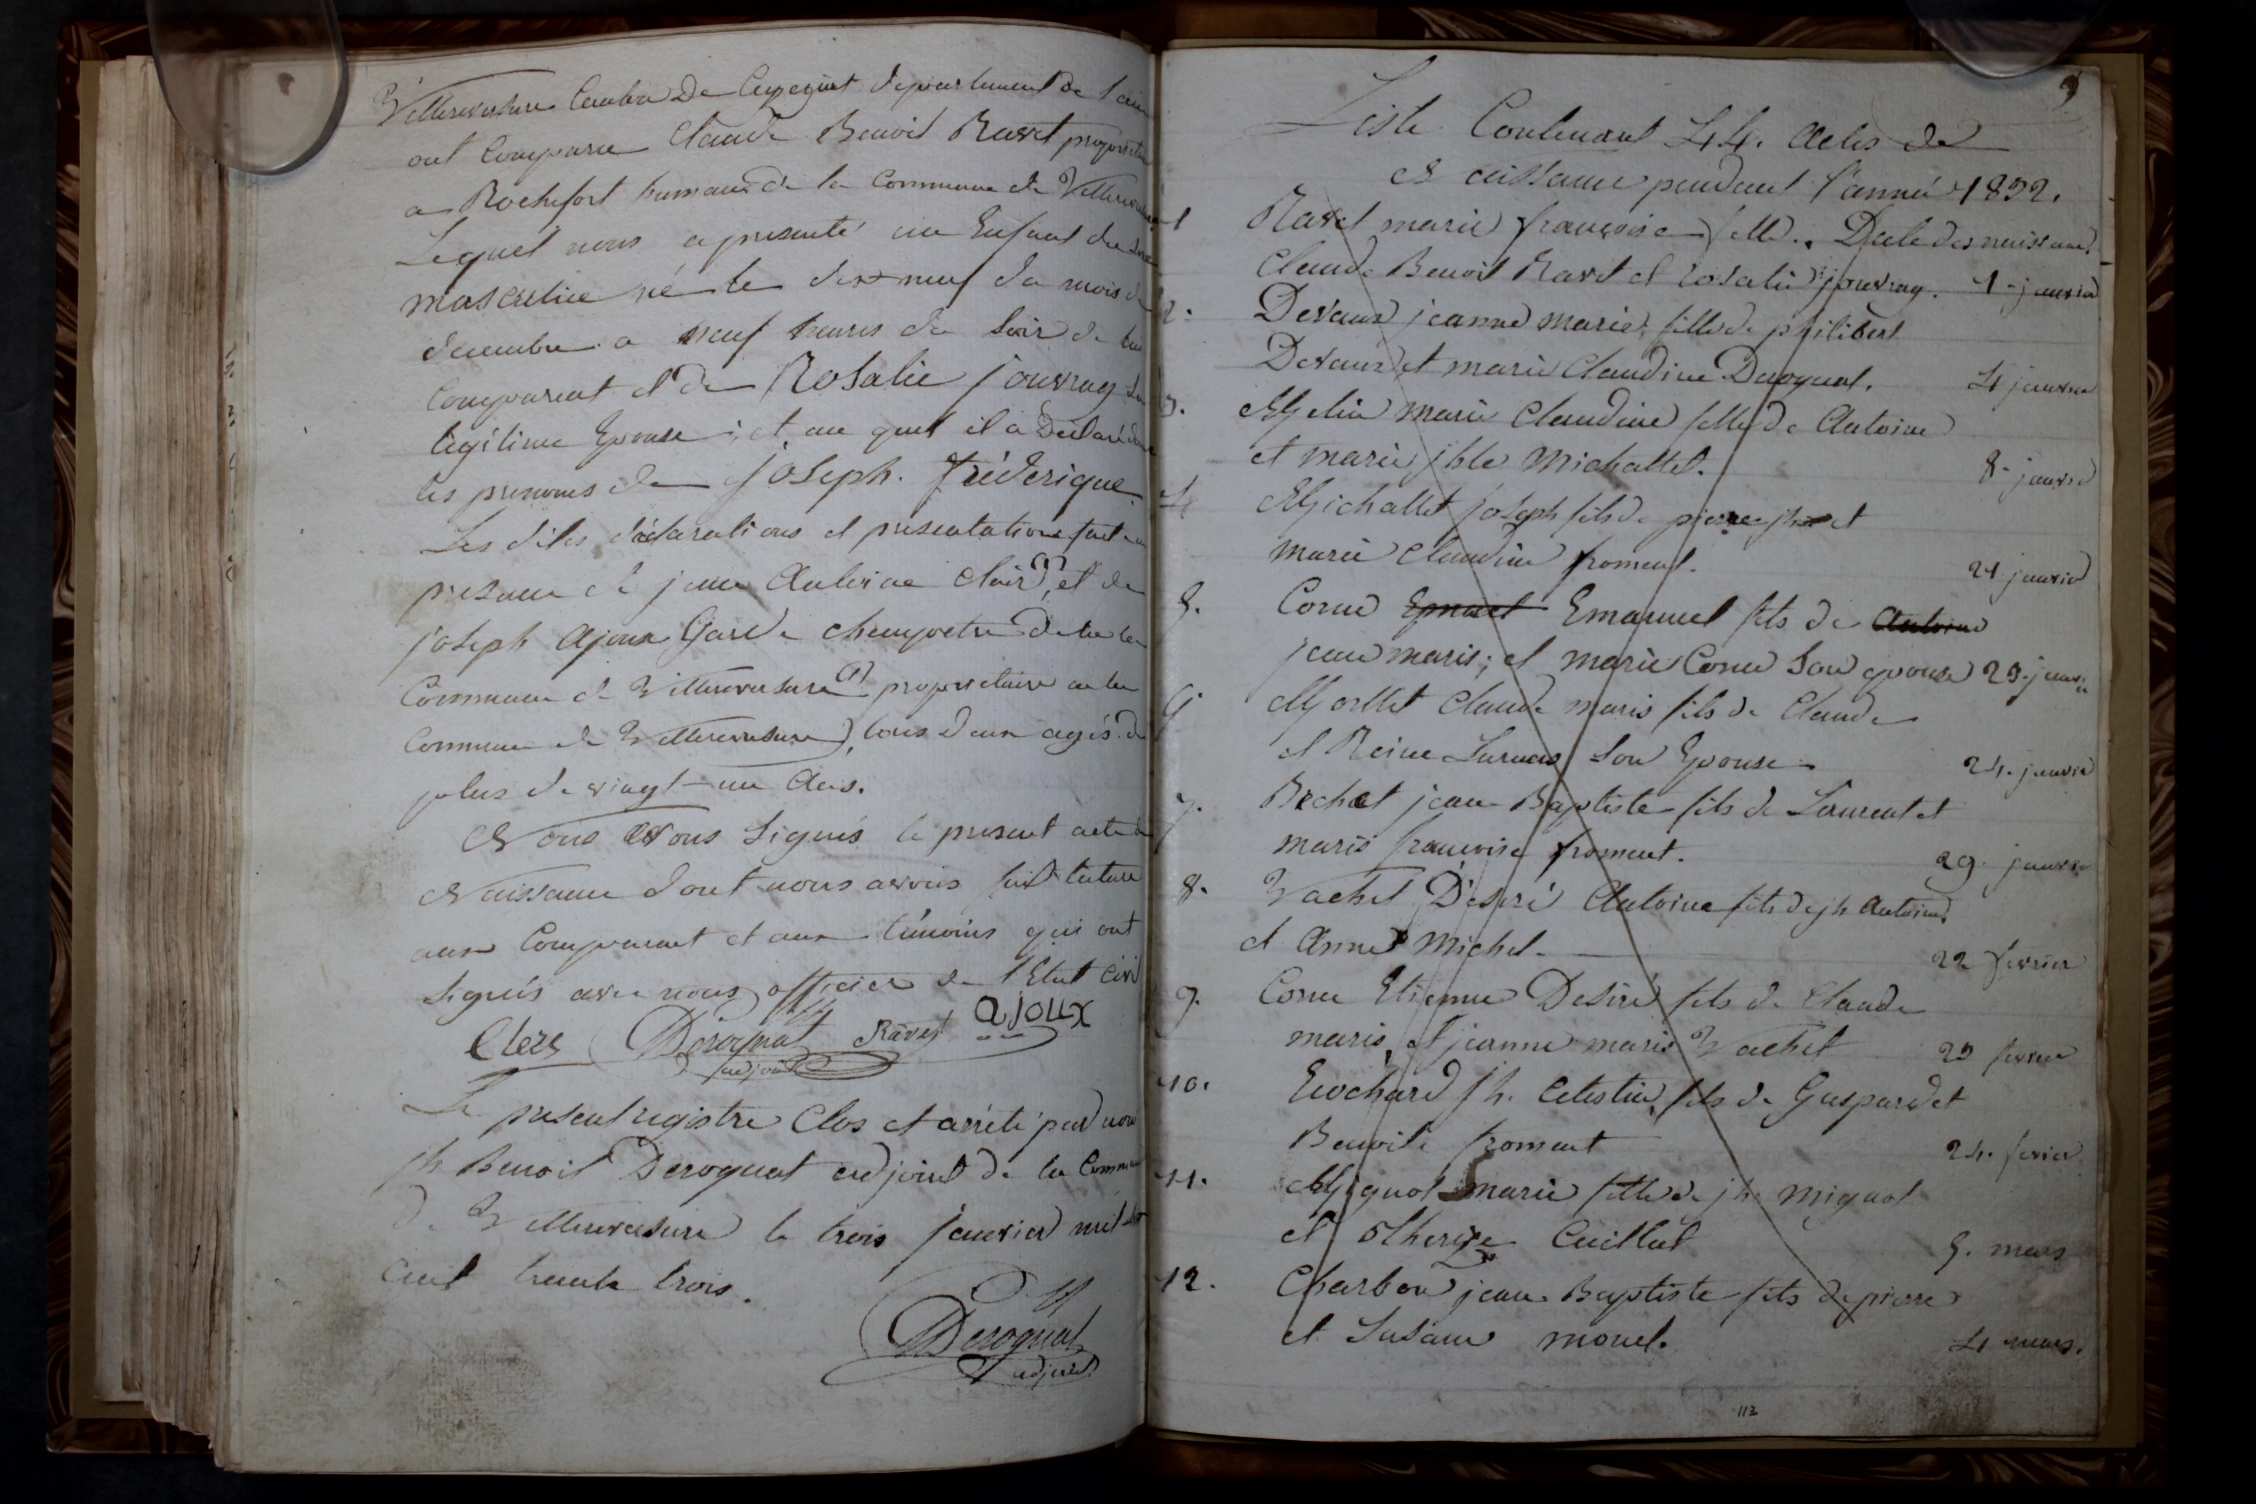 Villereversure Canton De Ceyzeriat département de l'ain
ont comparu Claude Benoit Ravet propriétaire
a Rochefort hameau de la Commune de Villereversure
Lequel nous a présenté un Enfant du sexe
masculin né le dix neuf du mois de
decembre a neuf heures du Soir de lui
Comparant et de Rosalie jouvray Sa
légitime Epouse ; et au quel il a Declaré donner
les prenoms de joseph. frédérique
Les dites déclarations et présentation fait en
presence de jean Antoine Clair (1), et de
joseph ajoux Garde champetre de la
Commune de Villereversure (1) propriétaire a la
Commune de Villereversure), tous deux agés de
plus de vingt-un Ans.
Nous avons Signés le present acte de
Naissance dont nous avons fait lecture
aux Comparant et aux témoins qui ont
Signés avec nous officier de l'Etat Civil
Clerc Deroquat Ravet ajoux
adjoint
Le présent registre Clos et arrété par nous
jh Benoit Deroquat adjoint de la Commune
de Villereversure le trois janvier mil huit
Cent trente trois.
Deroquat
adjoint
Liste Contenant 44. Actes de
naissance pendant l'année 1832.
1 Ravet marie françoise fille. Date des naissances.
Claude Benoit Ravet et rosalie jouvray. 1 - janvier
2. Devaux jeanne marie fille de philibert
Devaux et marie Claudine Deroquat. 4 janvier
3. Melin marie Claudine fille de Antoine
et marie jble Michallet. 8 - janvier
4 Michallet joseph fils de pierre jh et
marie Claudine froment. 21 janvier
5. Cornu Emanuel fils de Antoine
jean marie ; et marie Cornu Son epouse 23 janvier
6 Morllet Claude marie fils de Claude
et Reine Son Epouse 24. janvier
7. Bechet jean Baptiste fils de Laurent et
marie francoise froment. 29. janvier
8. Vachet Désiré Antoine fils de jh Antoine
et Anne Michel. 22 fevrier
9. Cornu Etienne Desiré fils de Claude
marie et jeanne marie Vachet 23 fevrier
10. Ecochard jh. Celestin, fils de Gaspard et
Benoite froment 24. fevrier
11. Mignot marie fille de jh Mignot
et Cuillat 5. mars
12. Charbon jean Baptiste fils de pierre
et Susanne monet. 4 mars.
112